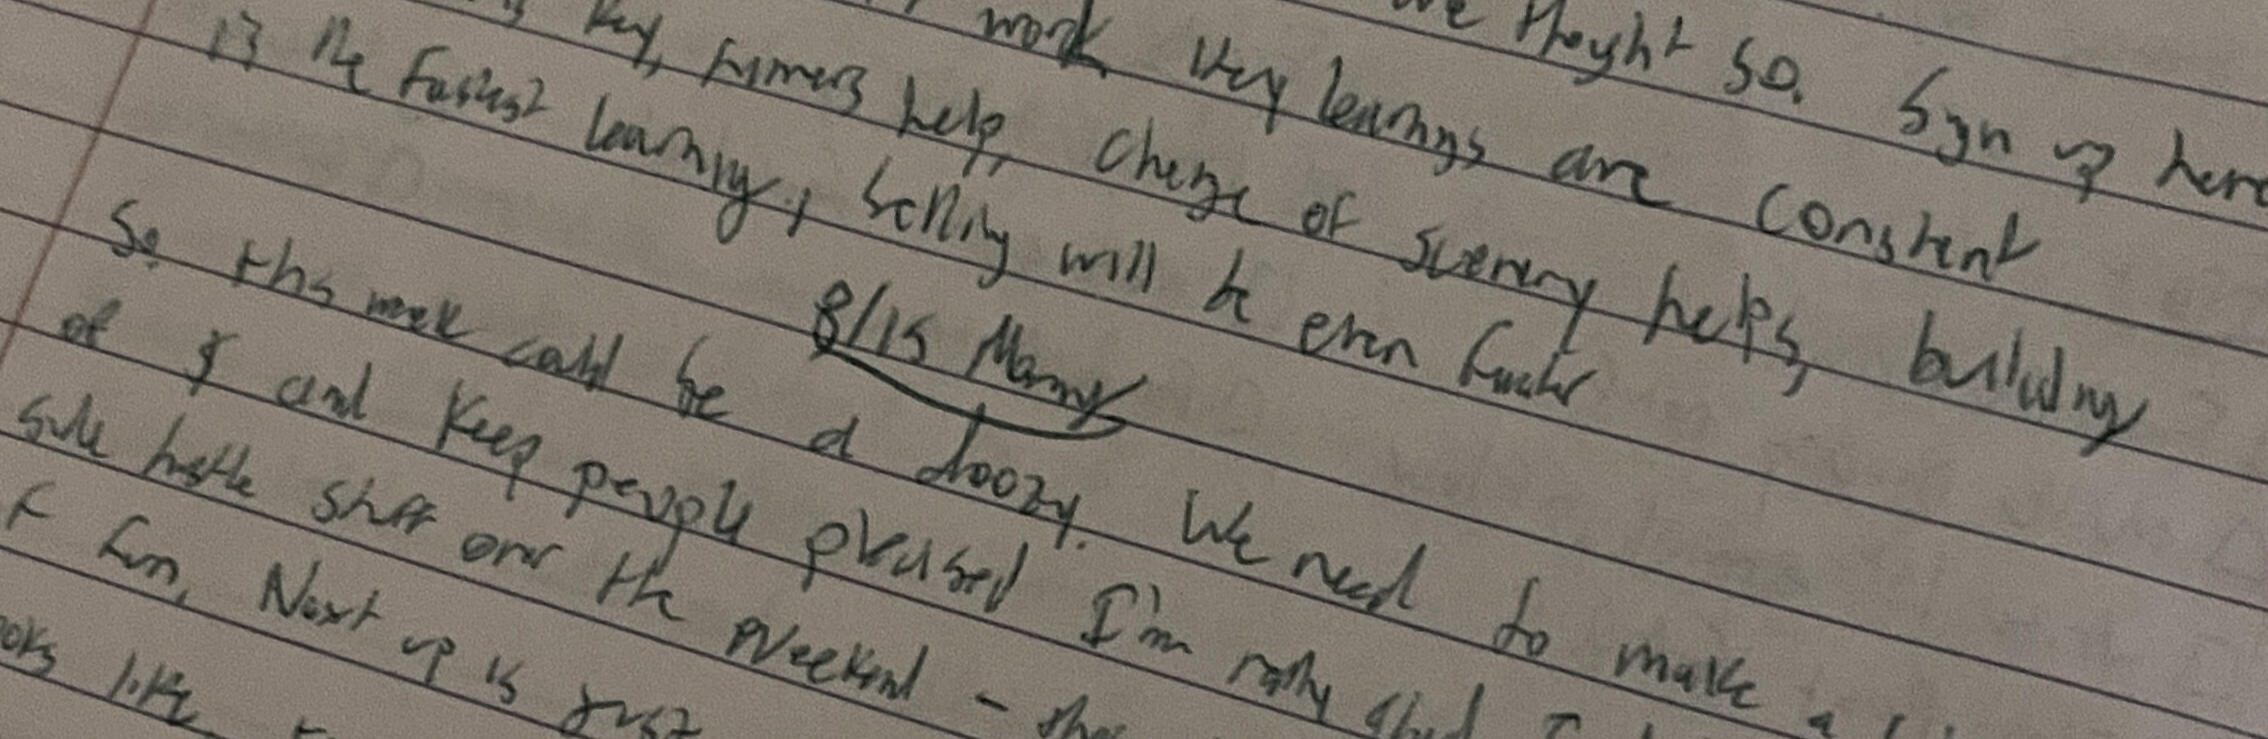 we thought so. Sign up here
work Key learnings are constant
key, timers help, change of scenery helps, building
is the fastest learning, selling will be even faster
8/15 Morning
So this week could be a doozy. We need to make a
of $ and keep people pleased I'm really glad I
side hustle stuff over the weekend - that
fun, Next up is just
like